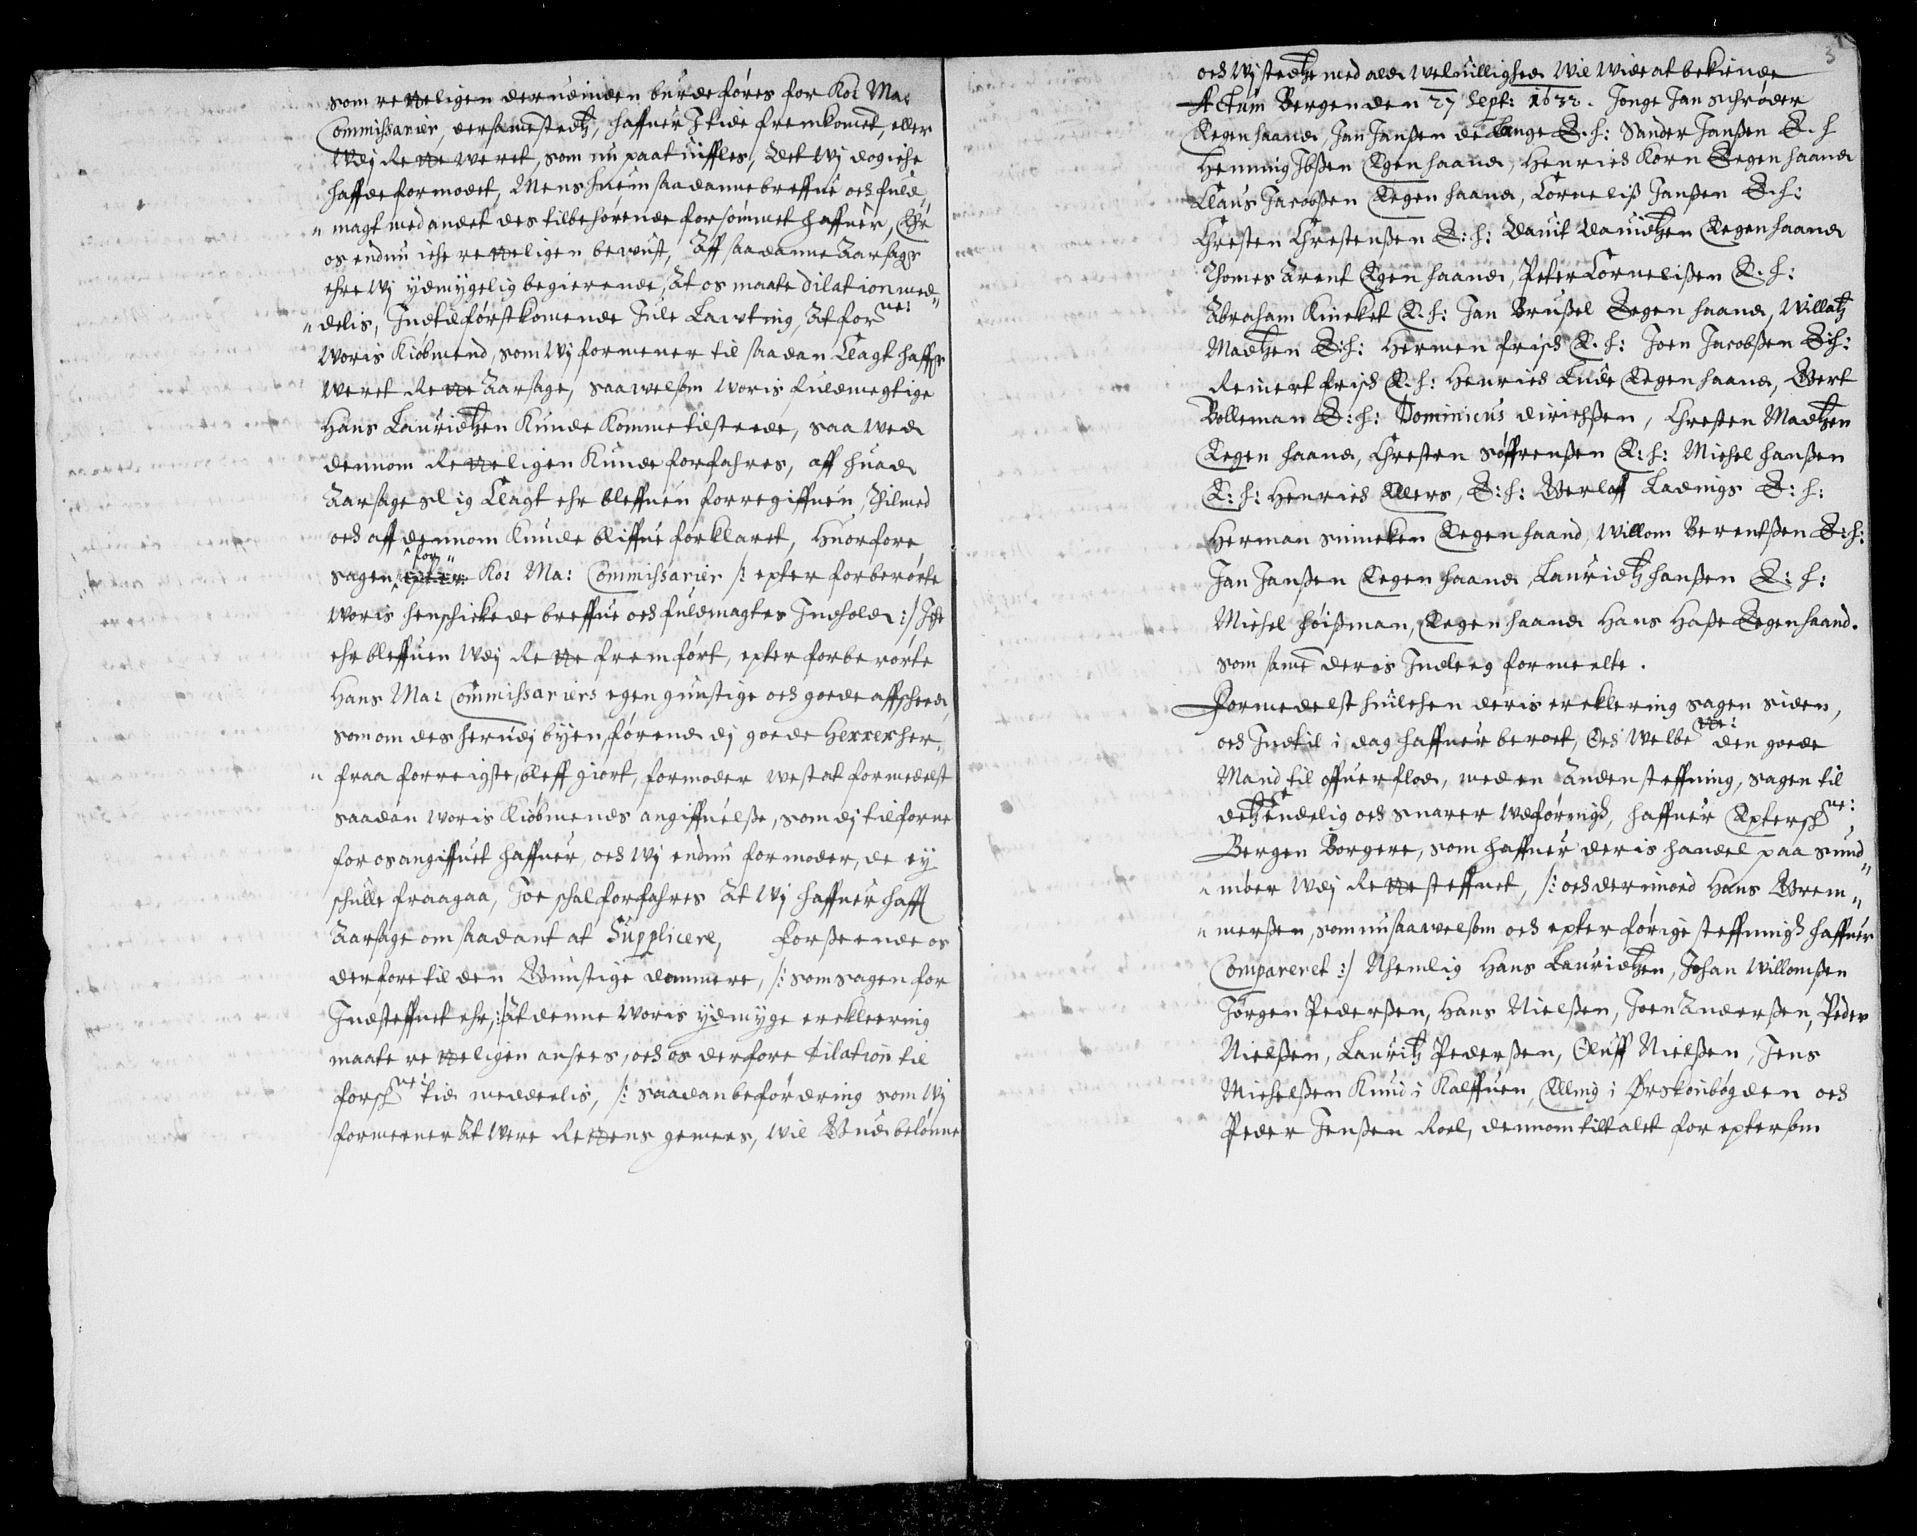 som retteligen derudinden burde føres for Ko: Ma:
Commissarier, dersammestedtz, haffuer I tide fremkommet, eller
Udj Rette weret, som nu paatuiffles, Det Wj dog iche
haffde formodet, Mens huem saadanne breffue och fuld„
„ magt med andet des tilbehørende forsømmet haffuer, Ehr
os endnu iche retteligen bewust, Aff saadanne Aarsager
ehre Wj ydmygelig begierende, At os maate dilation med„
„ delis, Indtil førstkomende Jule Lawting, At forne:
Woris Kiøbmend, som Wj formener til saadan Clagt haffer
weret Rette Aarsage, saawelsom Woris fuldmegtige
Hans Lauridtzen Kunde Komme tilstæde, saa wed
dennom Retteligen Kunde forfahres, aff huad
Aarsage slig Clagt ehr bleffuen forregiffuen, Thilmed
och aff dennom Kunde bliffue forklaret, Huorfore
sagen for Ko: Ma: Commissarier /: epter forberørte
Woris henschickede breffue och fuldmagtes Indhold :/ Iche
ehr bleffuen Wdj Rette fremført, epter forberørte
Hans Ma: Commissariers egen gunstige och goede affscheed,
som om des herudj byen, førend dj goede Herrer her„
„ fraa forreigste, bleff giort, formoder west at formedelst
saadan Woris Kiøbmends angiffuelse, som dj tilforne
for os angiffuet haffuer, och Wj endnu formoder, de ey
schulle fraagaa, Joe schal forfahres At Wj haffuer hafft
Aarsage om saadant at Supplicere, forseende os
derfore til den Gunstige dommere, /: som sagen for
Indsteffnet ehr, :/ At denne Woris ydmyge erekleering
maate retteligen ansees, och os derfore dilation til
forschne: tid meddeelis, /: saadan befordring som Wj
formeener At Were Rettens gemees, wil Gud belønne
och Wj stedtze med ald welwillighed Wil Wide at bekiende
Actum Bergen den 27 Sept: 1632. Jonge Jan Schrøder
Eegen haand, Jan Janssen de Lange E.h: Sander Janssen E.h
Henning Ibssen Egen haand, Henrich Korn Eegen haand
Claus Jacobssen Eegen haand, Cornelis Janssen E.h:
Chresten Chrestenssen E:h: David Dauidtzen Eegen haand
Thomes Arent Egen haand, Peter Cornelissen E.h:
Abraham Kincket E.h: Jan Brussel Eegen haand, Willatz
Madtzen E:h: Hermen frisch E.h: Joen Jacobssen E:h:
Reinert frisch E.h: Henrich Lude Eegen haand, Gert
Bolleman E:h: Dominicus dirichssen, Chresten Madtzen
Eegen haand, Chresten Søffrenssen E:h: Michel Hanssen
E:h: Henrich Ellers, E:h: Gerloff Ladnigs E:h:
Herman Sinneken Eegen haand, Willom Berentssen E:h:
Jan Janssen Eegen haand, Lauridtz Hanssen E:h:
Michel Høissman, Eegen haand Hans Hasse Eegen haand.
som samme deris Indleg formeelte.
Formedelst huilchen deris erekleering sagen siden,
och Indtil i dag haffuer beroet, Och Welbne: den goede
Mand til offuerflod, med en Anden steffning, sagen til
detz Endelig och snarer udførinng, haffuer Epterschne:
Bergen Borgere, som haffuer deris handel paa Sund„
„ møer Wdj Rette steffnet, /: och derimoed Hans Brem„
„ merssen, som nu saawelsom och epter førige steffning haffuer
Compareret :/ Nhemlig Hans Lauridtzen, Johan Willomssen
Jørgen Pederssen, Hans Nielssen, Joen Anderssen, Peder
Nielssen, Lauritz Pederssen, Oluff Nielssen, Jens
Michelssen Knud i Kalffuen, Elling i Ørskoubøgden och
Peder Jenssen Roel, dennom tiltalet for eptersom